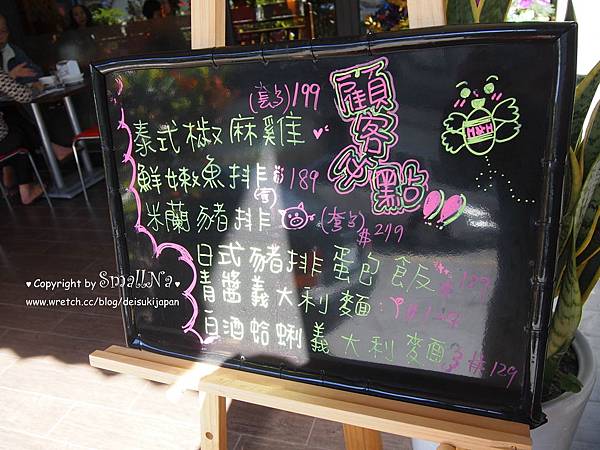 顧客必點
(套)199
泰式椒麻雞
鮮嫩魚排(套)189
米蘭豬排(套)$219
日式豬排蛋包飯
青醬義大利麵
白酒蛤蜊義大利麵 $129
Copyright by SmallNa
www.wretch.cc/blog/deisukijapan